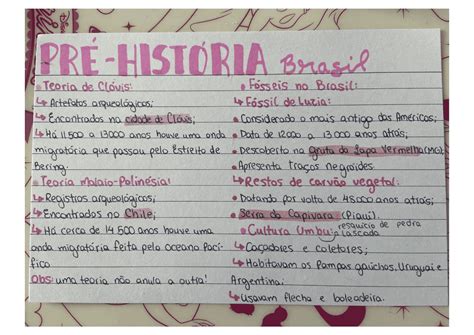 PRÉ-HISTÓRIA Brasil
• Teoria de Clóvis:
↳ Artefatos arqueológicos;
↳ Encontrados na cidade de Clóvis;
↳ Há 11.500 a 13000 anos houve uma onda
migratória que passou pelo Estreito de
Bering.
• Teoria Malaio-Polinésia:
↳ Registros arqueológicos;
↳ Encontrados no Chile;
↳ Há cerca de 14.500 anos houve uma
onda migratória feita pelo oceano Pací-
fico
Obs: uma teoria não anula a outra!
• Fósseis no Brasil:
↳ Fóssil de Luzia:
• Considerado o mais antigo das Américas;
• Data de 12000 a 13000 anos atrás;
• Descoberto na gruta da Lapa Vermelha (MG);
• Apresenta traços negroides.
↳ Restos de carvão vegetal:
• Datando por volta de 48000 anos atrás;
• Serra da Capivara (Piauí).
↳ Cultura Umbu: resquício de pedra
lascada
↳ Caçadores e coletores;
↳ Habitavam os Pampas gaúchos, Uruguai e
Argentina;
↳ Usavam flecha e boleadeira.